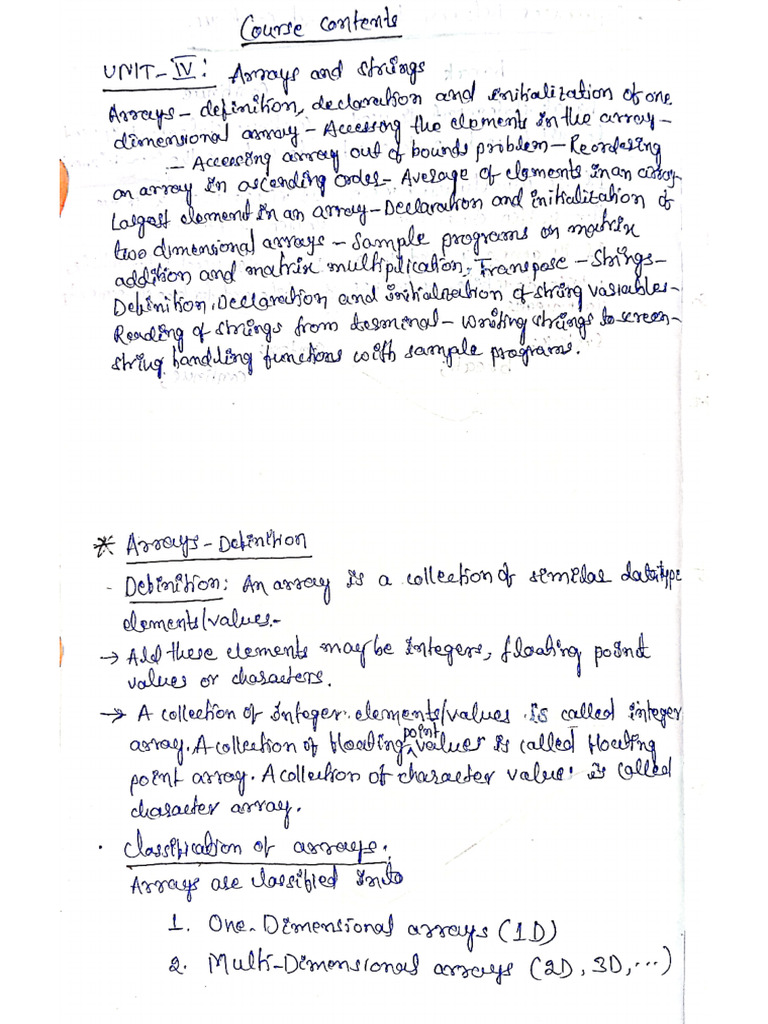 Course contents
UNIT-IV: Arrays and strings
Arrays - definition, declaration and initialization of one
dimensional array - Accessing the elements in the array -
- Accessing array out of bounds problem - Reordering
an array in ascending order - Average of elements in an array -
Largest element in an array - Declaration and initialization of
two dimensional arrays - Sample programs on matrix
addition and matrix multiplication, Transpose - Strings -
Definition, Declaration and initialization of string variables -
Reading of strings from terminal - Writing strings to screen -
string handling functions with sample programs.
* Arrays - Definition
- Definition: An array is a collection of similar datatype
elements/values.-
→ All these elements may be integers, floating point
values or characters.
→ A collection of Integer elements/values is called integer
array. A collection of floating point values is called floating
point array. A collection of character value is called
character array.
· Classification of arrays:
Arrays are classified into
1. One-Dimensional arrays (1D)
2. Multi-Dimensional arrays (2D, 3D, ...)